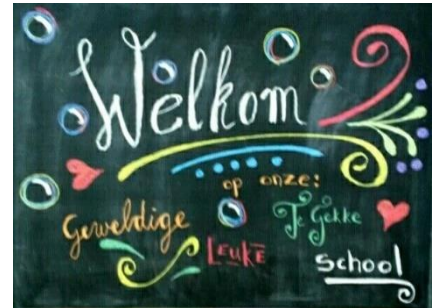 Welkom
op onze:
Geweldige
Te Gekke
LEUKE
school